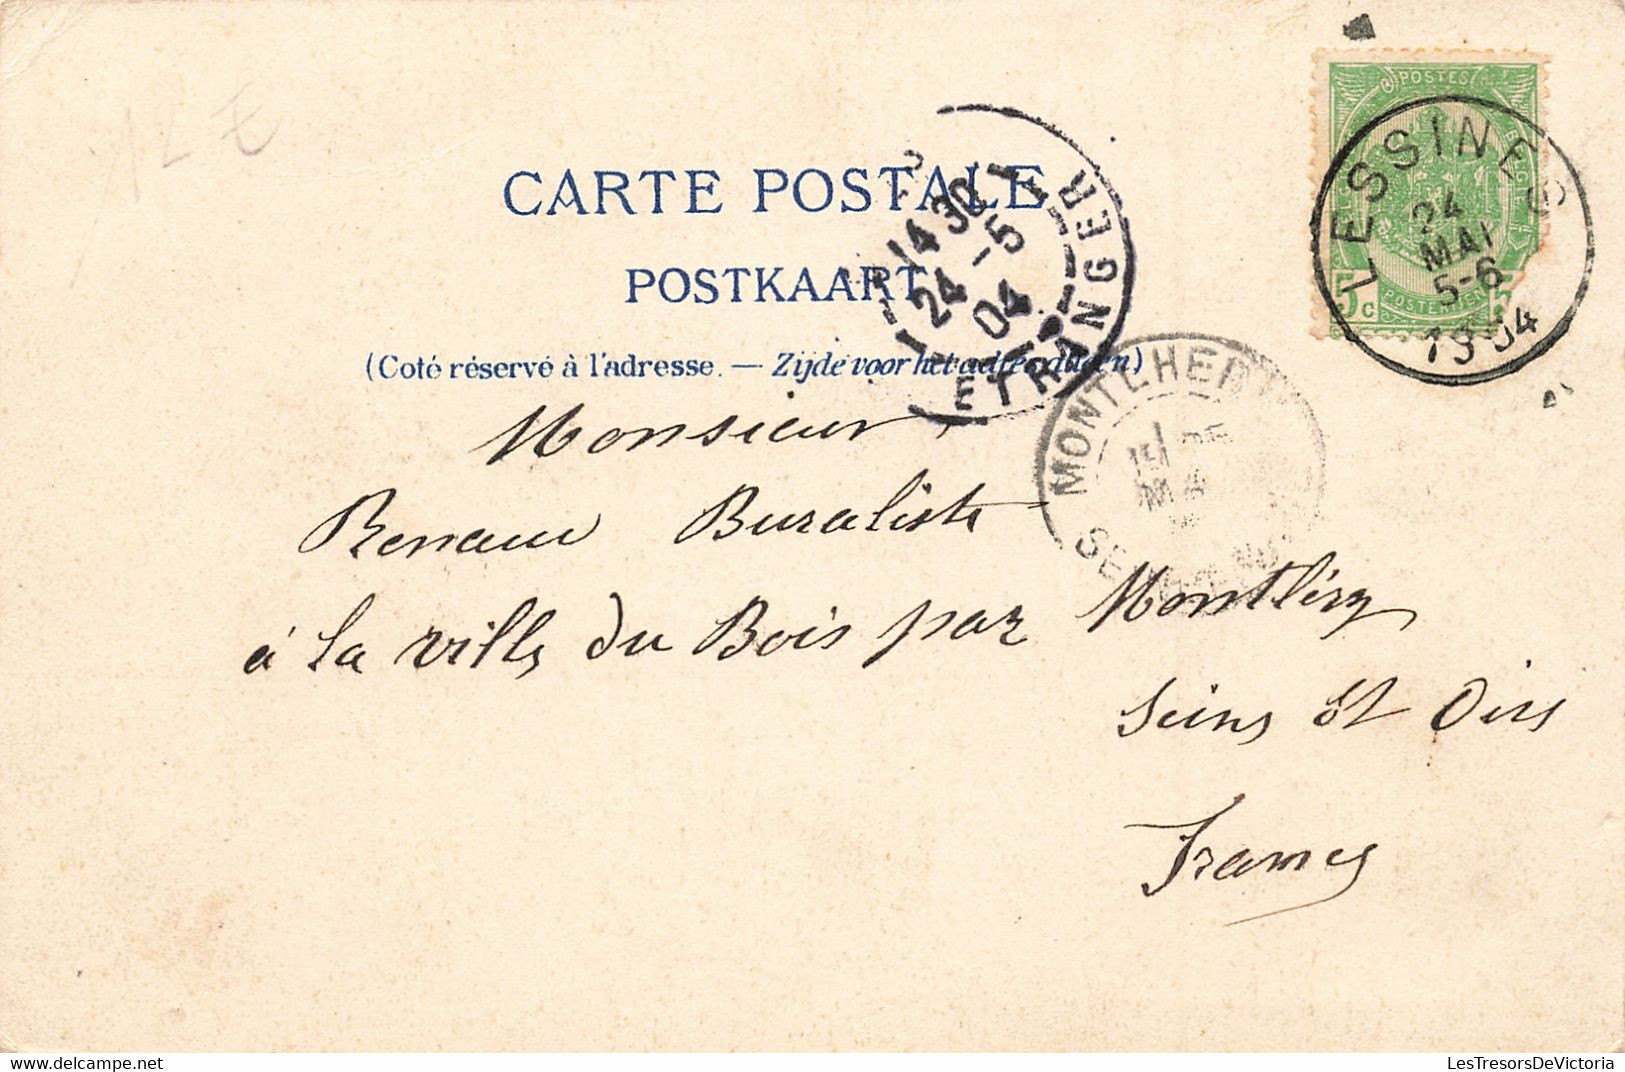 12 €
POSTES
BELGIË
5c
5
POSTERIJEN
LESSINES
24
MAI
5-6
1904
14 30
24 -5
04
ETRANGER
CARTE POSTALE
POSTKAART
(Coté réservé à l'adresse. — Zijde voor het adres dienen)
MONTLHERY
Monsieur
Renaux Buraliste
à la ville du Bois par Montléry
Seine et Oise
France
delcampe.net
LesTresorsDeVictoria